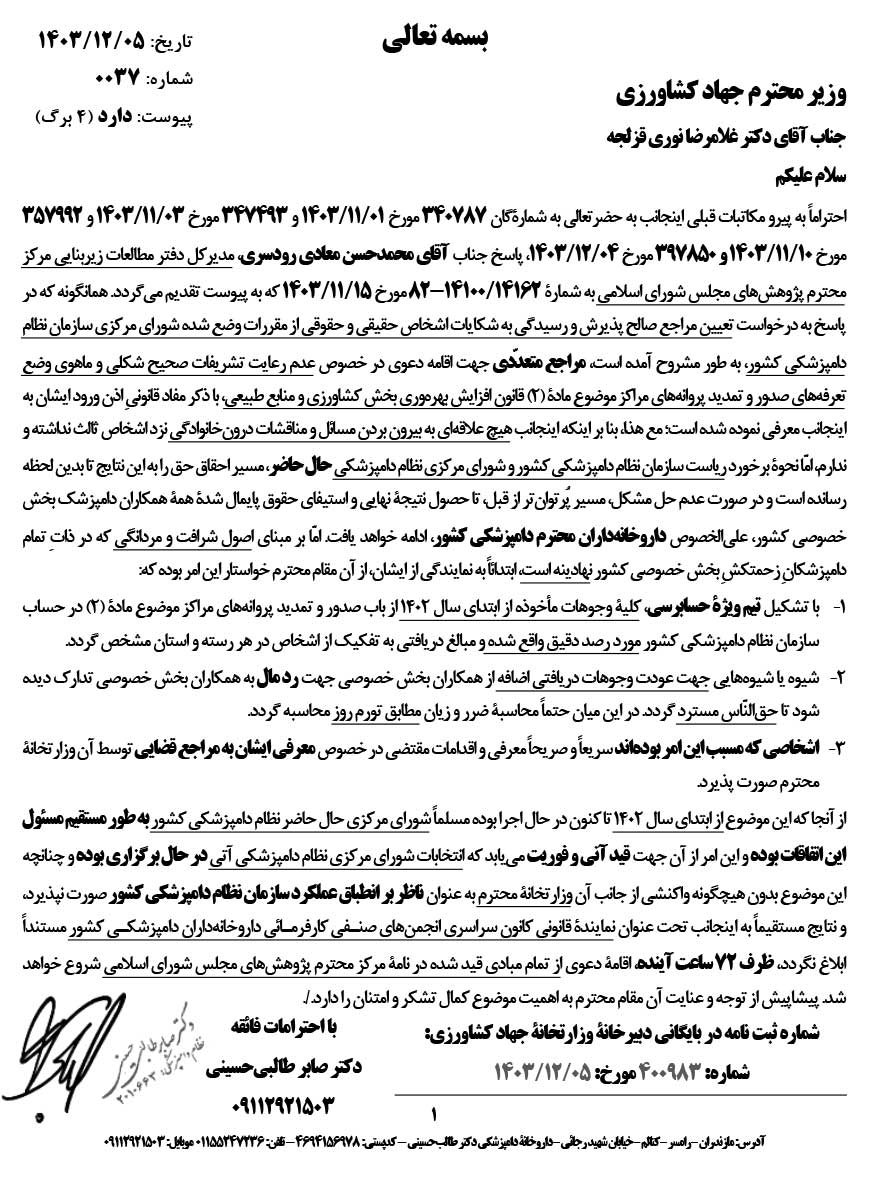 بسمه تعالی
تاریخ: ۱۴۰۳/۱۲/۰۵
شماره: ۰۰۳۷
پیوست: دارد (۴ برگ)
وزیر محترم جهاد کشاورزی
جناب آقای دکتر غلامرضا نوری قزلجه
سلام علیکم
احتراماً به پیرو مکاتبات قبلی اینجانب به حضرتعالی به شمارگان ۳۴۰۷۸۷ مورخ ۱۴۰۳/۱۱/۰۱ و ۳۴۷۴۹۳ مورخ ۱۴۰۳/۱۱/۰۳ و ۳۵۷۹۹۲
مورخ ۱۴۰۳/۱۱/۱۰ و ۳۹۷۸۵۰ مورخ ۱۴۰۳/۱۲/۰۴، پاسخ جناب آقای محمدحسن معادی رودسری، مدیرکل دفتر مطالعات زیربنایی مرکز
محترم پژوهش‌های مجلس شورای اسلامی به شمارۀ ۱۴۱۰۰/۱۴۱۶۲–۸۲ مورخ ۱۴۰۳/۱۱/۱۵ که به پیوست تقدیم می‌گردد. همانگونه که در
پاسخ به درخواست تعیین مراجع صالح پذیرش و رسیدگی به شکایات اشخاص حقیقی و حقوقی از مقررات وضع شده شورای مرکزی سازمان نظام
دامپزشکی کشور، به طور مشروح آمده است، مراجع متعدّدی جهت اقامه دعوی در خصوص عدم رعایت تشریفات صحیح شکلی و ماهوی وضع
تعرفه‌های صدور و تمدید پروانه‌های مراکز موضوع مادۀ (۲) قانون افزایش بهره‌وری بخش کشاورزی و منابع طبیعی، با ذکر مفاد قانونیِ اذن ورود ایشان به
اینجانب معرفی نموده شده است؛ مع هذا، بنا بر اینکه اینجانب هیچ علاقه‌ای به بیرون بردن مسائل و مناقشات درون‌خانوادگی نزد اشخاص ثالث نداشته و
ندارم، امّا نحوۀ برخورد ریاست سازمان نظام دامپزشکی کشور و شورای مرکزی نظام دامپزشکی حال حاضر، مسیر احقاق حق را به این نتایج تا بدین لحظه
رسانده است و در صورت عدم حل مشکل، مسیر پُرتوان‌تر از قبل، تا حصول نتیجۀ نهایی و استیفای حقوق پایمال شدۀ همۀ همکاران دامپزشک بخش
خصوصی کشور، علی‌الخصوص داروخانه‌داران محترم دامپزشکی کشور، ادامه خواهد یافت. امّا بر مبنای اصول شرافت و مردانگی که در ذاتِ تمام
دامپزشکانِ زحمتکشِ بخش خصوصی کشور نهادینه است، ابتدائاً به نمایندگی از ایشان، از آن مقام محترم خواستار این امر بوده که:
۱- با تشکیل تیم ویژۀ حسابرسی، کلیۀ وجوهات مأخوذه از ابتدای سال ۱۴۰۲ از باب صدور و تمدید پروانه‌های مراکز موضوع مادۀ (۲) در حساب
سازمان نظام دامپزشکی کشور مورد رصد دقیق واقع شده و مبالغ دریافتی به تفکیک از اشخاص در هر رسته و استان مشخص گردد.
۲- شیوه یا شیوه‌هایی جهت عودت وجوهات دریافتی اضافه از همکاران بخش خصوصی جهت رد مال به همکاران بخش خصوصی تدارک دیده
شود تا حق‌النّاس مسترد گردد. در این میان حتماً محاسبۀ ضرر و زیان مطابق تورم روز محاسبه گردد.
۳- اشخاصی که مسبب این امر بوده‌اند سریعاً و صریحاً معرفی و اقدامات مقتضی در خصوص معرفی ایشان به مراجع قضایی توسط آن وزارتخانۀ
محترم صورت پذیرد.
از آنجا که این موضوع از ابتدای سال ۱۴۰۲ تا کنون در حال اجرا بوده مسلماً شورای مرکزی حال حاضر نظام دامپزشکی کشور به طور مستقیم مسئول
این اتفاقات بوده و این امر از آن جهت قید آنی و فوریت می‌یابد که انتخابات شورای مرکزی نظام دامپزشکی آتی در حال برگزاری بوده و چنانچه
این موضوع بدون هیچگونه واکنشی از جانب آن وزارتخانۀ محترم به عنوان ناظر بر انطباق عملکرد سازمان نظام دامپزشکی کشور صورت نپذیرد،
و نتایج مستقیماً به اینجانب تحت عنوان نمایندۀ قانونی کانون سراسری انجمن‌های صنفی کارفرمائی داروخانه‌داران دامپزشکی کشور مستنداً
ابلاغ نگردد، ظرف ۷۲ ساعت آینده، اقامۀ دعوی از تمام مبادی قید شده در نامۀ مرکز محترم پژوهش‌های مجلس شورای اسلامی شروع خواهد
شد. پیشاپیش از توجه و عنایت آن مقام محترم به اهمیت موضوع کمال تشکر و امتنان را دارد./.
شماره ثبت نامه در بایگانی دبیرخانۀ وزارتخانۀ جهاد کشاورزی:
شماره: ۴۰۰۹۸۳ مورخ: ۱۴۰۳/۱۲/۰۵
با احترامات فائقه
دکتر صابر طالبی‌حسینی
۰۹۱۱۲۹۲۱۵۰۳
دکتر صابر طالبی حسینی
۱
آدرس: مازندران – رامسر – کتالم – خیابان شهید رجائی – داروخانۀ دامپزشکی دکتر طالب‌حسینی – کدپستی: ۴۶۹۴۱۵۶۹۷۸ – تلفن: ۰۱۱۵۵۲۴۷۲۳۶ موبایل: ۰۹۱۱۲۹۲۱۵۰۳